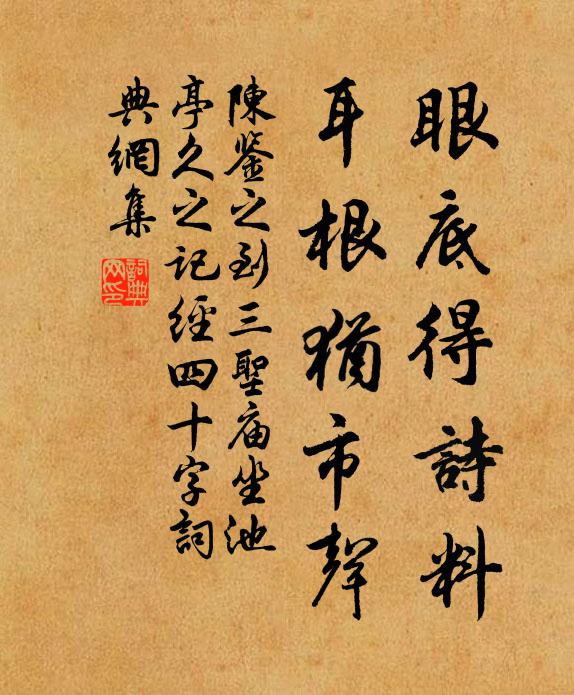 眼底得詩料
耳根猶市聲
陳鑒之到三聖庙坐池
亭久之记經四十字詞
典網集
詞典
网印